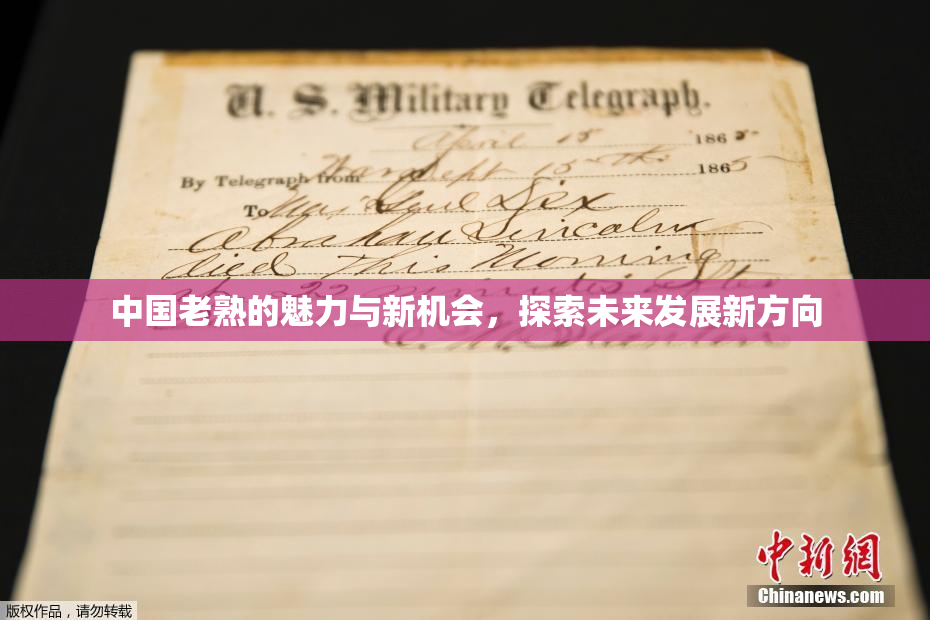 U. S. Military Telegraph.
April 15 1865
By Telegraph from War Dept 15th 1865
To Maj Genl Dix
Abraham Lincoln
died this Morning
22 minutes after
中国老熟的魅力与新机会，探索未来发展新方向
E. M. Stanton
中新网
Chinanews.com
版权作品，请勿转载